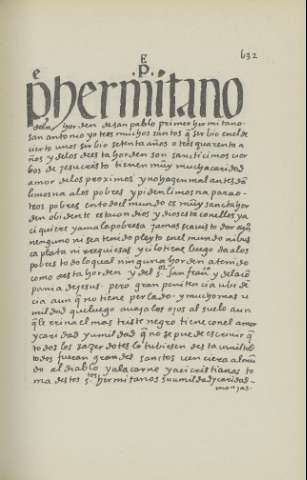 632
E
P
e
p hermitano
dela horden de san pablo primer hermitano
san antonio y otros muchos santos q̃ serbio en el de
cierto unos serbio setenta años otros quarenta a
ños y desde esta horden son sancticimos cier
bos de jesucristo tienen muy mucha caridad
amor de los proximos y no hazen mal antes dan
limosna a los pobres y piden limosna para o
tros pobres en todo el mundo es muy sancta hor
den obidente estauan dios y dios esta con ellos ya
ci quieren y ama la pobresa jamas se a uisto ni oydo
ninguno ni se a tenido pleyto en el mundo ni busca
ca plata ni rrequiesas y ci lo tiene luego da a los
pobres todo lo qual ninguna horden a tenido
como desta horden y del s. san franco y de la co
pania de jesus pero gran penitencia
cia aun q̃ no tiene perlado y mucho mas u
mildad que luego auaja los ojos al suelo aun
q̃ le rreina el mas triste negro tiene con el amor
y caridad y umildad q̃ no se puede escriuir q̃
todos los sazerdotes lo tubiesen desta umildad
todos fueran grandes sanctos uencieran al mun
do al diablo y a la carne y aci cristianos to
ma destos stos hermitanos su umildad y caridad
monjas